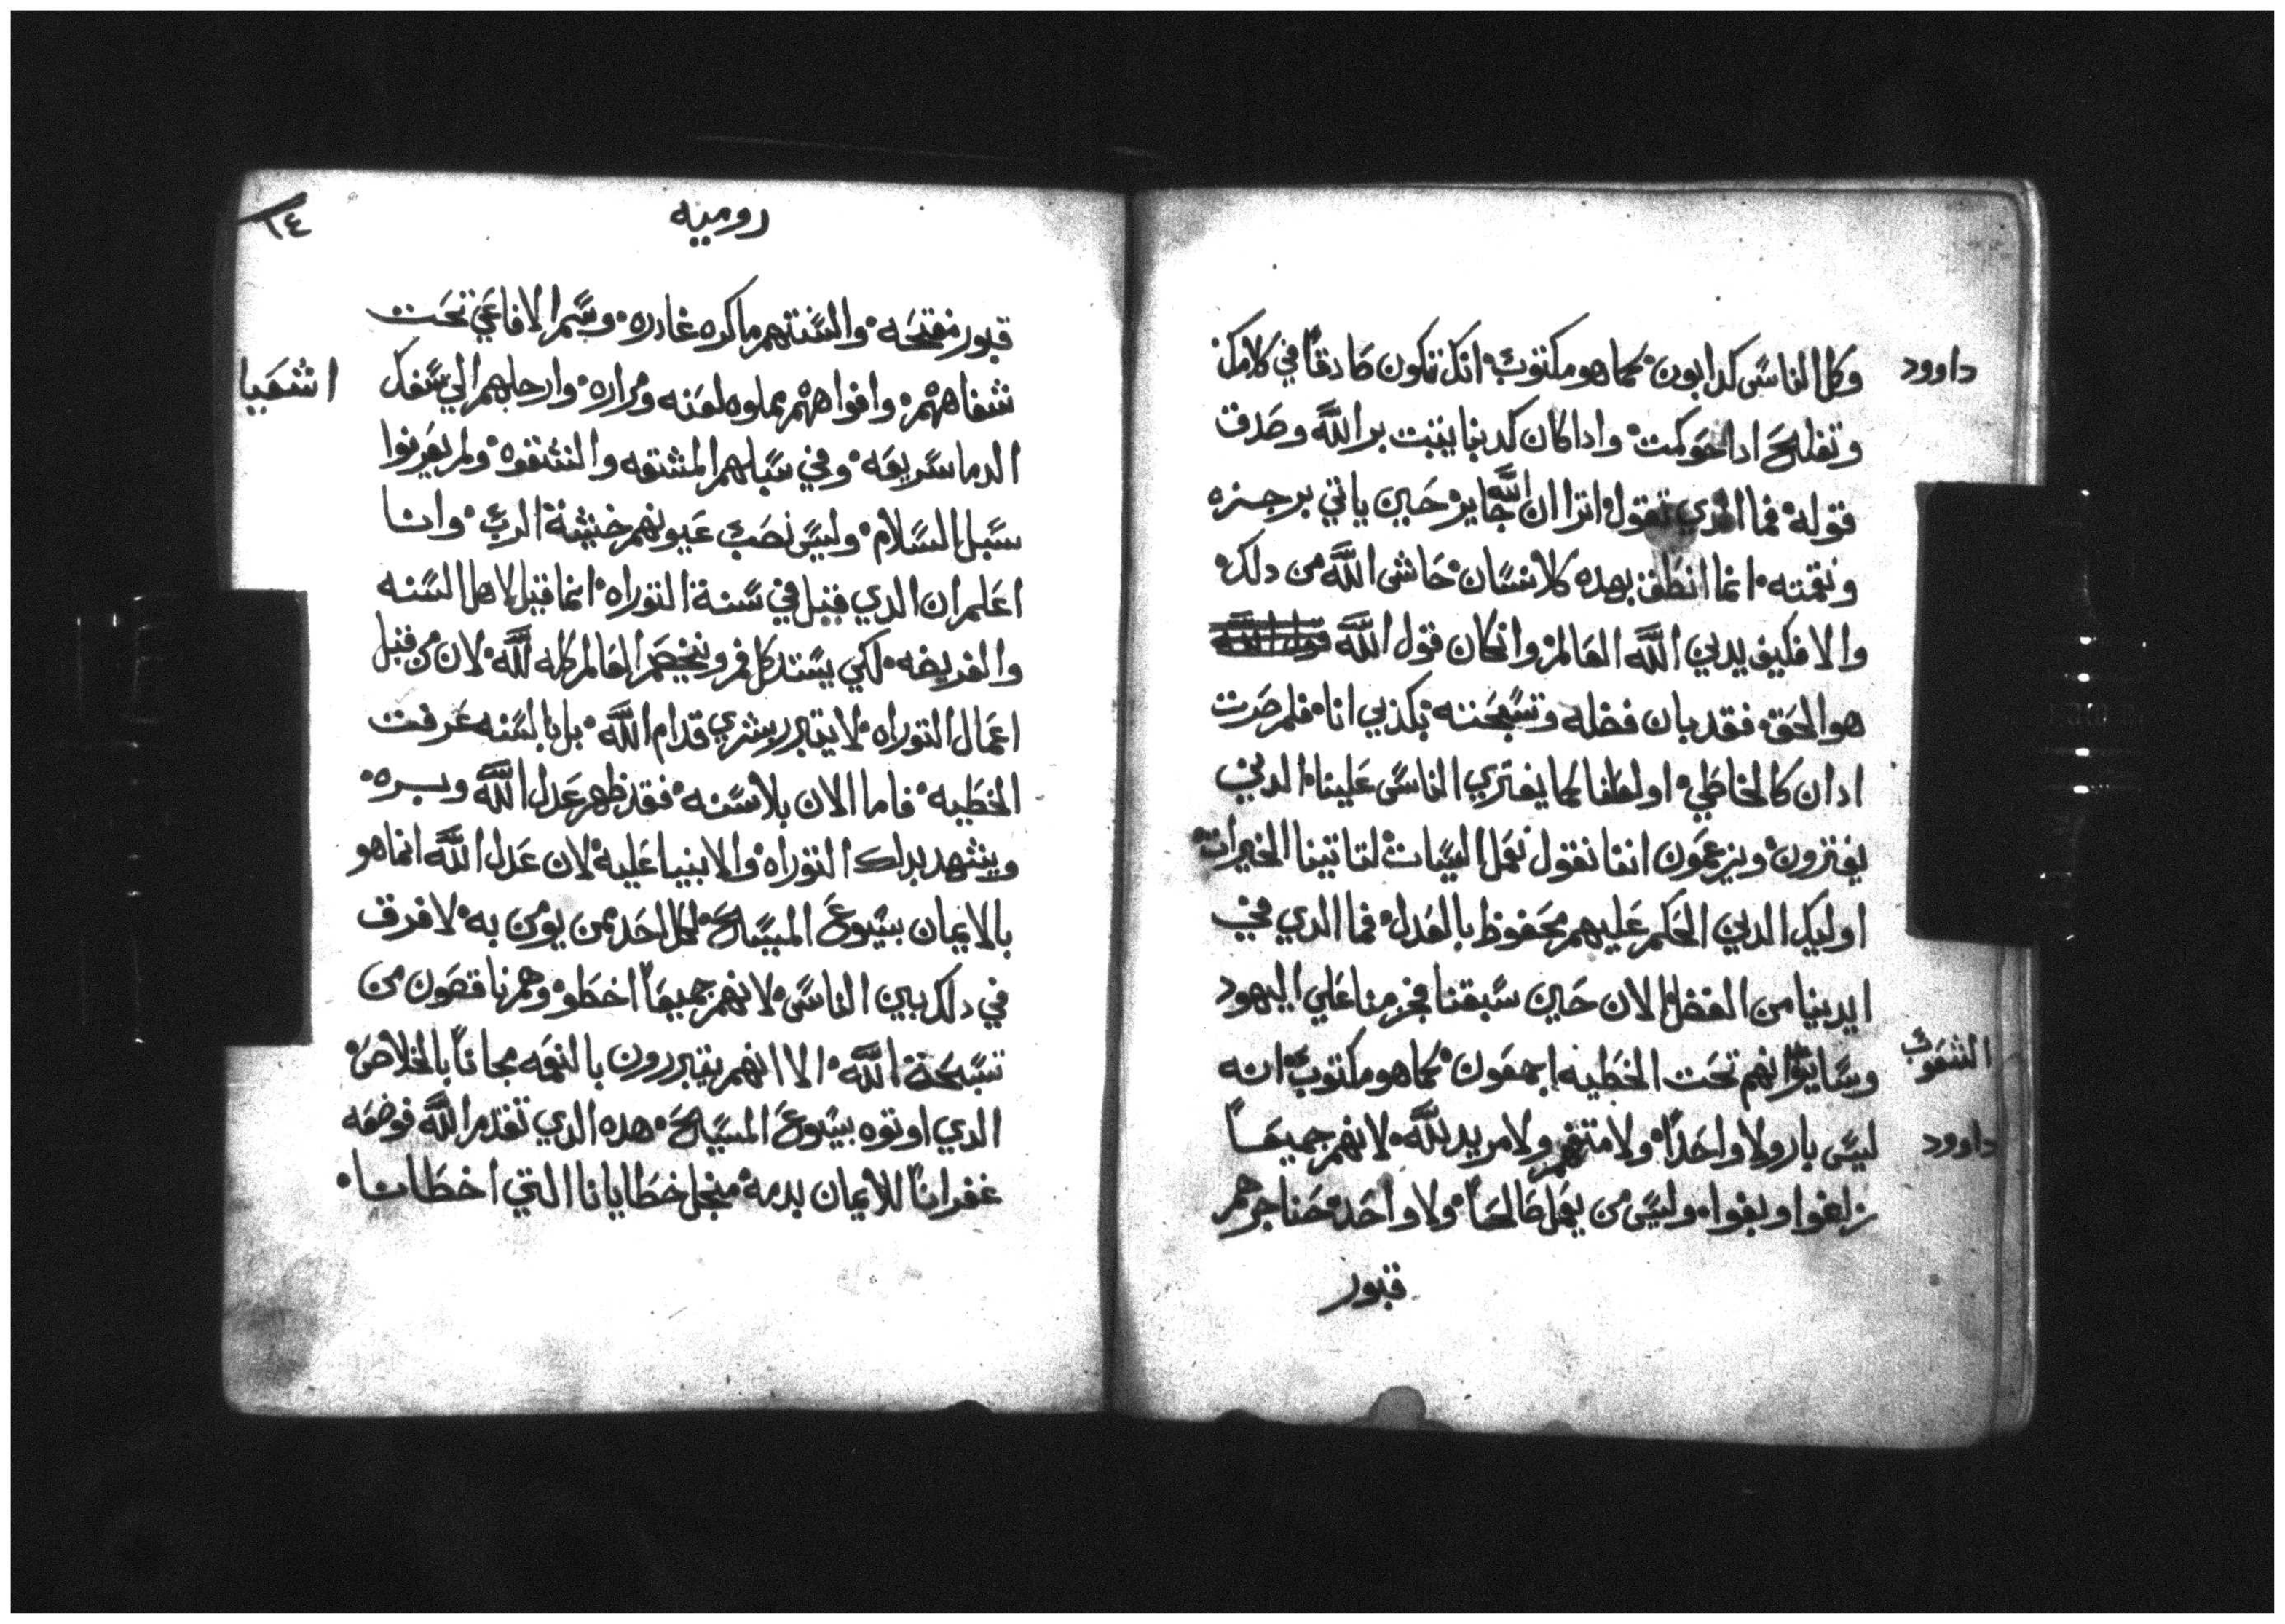 داوود
وكل الناس كدابون كما هو مكتوب انك تكون صادقاً في كلامك
وتفلح ادا حوكمت وادا كان كدبنا يتبت بر الله وصدق
قوله فما الدي تقول اترا ان الله جاير حين ياتي برجزه
ونقمته انما انطق بهده كالانسان حاشى الله من دلك
والا فكيف يدين الله العالم وانكان قول الله
هو الحق فقد بان فضله وتسبحته بكذبي انا فلم صرت
ادان كالخاطي اولعلنا كما يفتري الناس علينا الدين
يفترون ويزعمون اننا نقول نعمل السيات لتاتينا الخيرات
اوليك الدين الحكم عليهم محفوظ بالعدل فما الدي في
ايدينا من الفضل الان حين سبقنا فجزمنا علي اليهود
الشعوب
وساير انهم تحت الخطيه اجمعون كما هو مكتوب انه
داوود
ليس بار ولا واحداً ولا متفهم ولا مريد لله لانهم جميعاً
زاغوا وبغوا وليس من يعمل صالحاً ولا واحد حناجرهم
قبور
روميه
١٤
قبور مفتحه والسنتهم ماكره غادره وسم الافاعي تحت
اشعيا
شفاهم وافواههم مملوه لعنه ومراره وارجلهم الي سفك
الدما سريعه وفي سبلهم المشقه والشقوه ولم يعرفوا
سبل السلام وليس نصب عيونهم خشية الرب وانا
اعلم ان الدي قيل في سنة التوراه انما قيل لاهل السنه
والفريضه لكي يستد كل فم ويخصم العالم كله لله لان من قبل
اعمال التوراه لا يتبرر بشري قدام الله بل بالسنه عرفت
الخطيه فاما الان بلا سنه فقد ظهر عدل الله وبره
ويشهد بدلك التوراه والانبيا عليه لان عدل الله انما هو
بالايمان بيسوع المسيح لكل احد ممن يومن به لا فرق
في دلك بين الناس لانهم جميعاً اخطو وهم ناقصون من
تسبحة الله الا انهم يتبررون بالنعمه مجاناً بالخلاص
الدي اوتوه بيسوع المسيح هده الدي تقدم الله فوضعه
غفراناً للايمان بدمه منجل خطايانا التي اخطانا